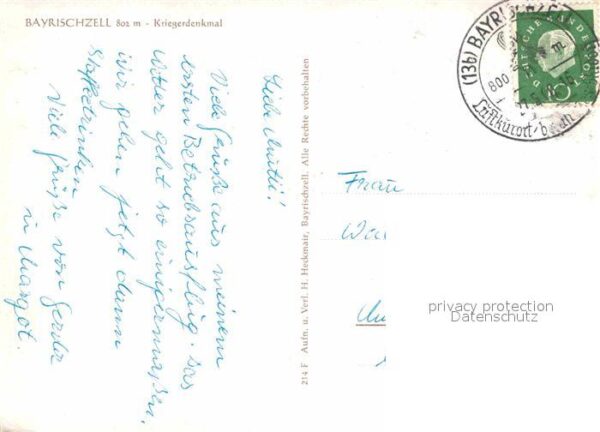 BAYRISCHZELL 802 m - Kriegerdenkmal
Liebe Mutti!
Viele Grüße aus meinem
ersten Betriebsausflug. Das
Wetter geht so einigermaßen.
Wir gehen jetzt dann
Viele Grüße von Gerda
u Margot.
214 F Aufn. u. Verl. H. Heckmair, Bayrischzell. Alle Rechte vorbehalten
(13b) BAYRISCHZELL
800
Luftkurort
DEUTSCHE BUNDESPOST
10
Frau
privacy protection
Datenschutz